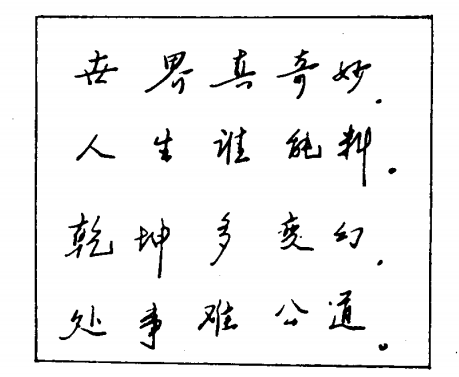 世界真奇妙，
人生谁能料。
乾坤多变幻，
处事难公道。